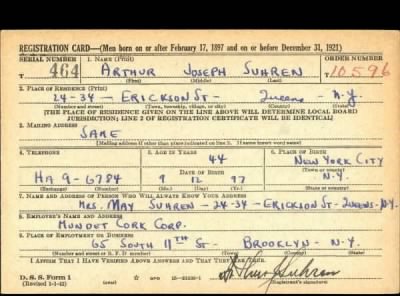 REGISTRATION CARD—(Men born on or after February 17, 1897 and on or before December 31, 1921)
SERIAL NUMBER 1. NAME (Print) ORDER NUMBER
T 464 ARTHUR JOSEPH SUHREN 10596
(First) (Middle) (Last)
2. PLACE OF RESIDENCE (Print)
24-34 - ERICKSON ST - QUEENS - N.Y.
(Number and street) (Town, township, village, or city) (County) (State)
[THE PLACE OF RESIDENCE GIVEN ON THE LINE ABOVE WILL DETERMINE LOCAL BOARD
JURISDICTION; LINE 2 OF REGISTRATION CERTIFICATE WILL BE IDENTICAL]
3. MAILING ADDRESS
SAME
[Mailing address if other than place indicated on line 2. If same insert word same]
4. TELEPHONE 5. AGE IN YEARS 6. PLACE OF BIRTH
44 NEW YORK CITY
HA 9-6784 DATE OF BIRTH (Town or county)
9 12 97 N.Y.
(Exchange) (Number) (Mo.) (Day) (Yr.) (State or country)
7. NAME AND ADDRESS OF PERSON WHO WILL ALWAYS KNOW YOUR ADDRESS
MRS. MAY SUHREN - 24-34 - ERICKSON ST - QUEENS - N.Y.
8. EMPLOYER'S NAME AND ADDRESS
MUNDET CORK CORP.
9. PLACE OF EMPLOYMENT OR BUSINESS
65 SOUTH 11TH ST - BROOKLYN - N.Y.
(Number and street or R. F. D. number) (Town) (County) (State)
I AFFIRM THAT I HAVE VERIFIED ABOVE ANSWERS AND THAT THEY ARE TRUE.
D. S. S. Form 1
(Revised 1-1-42) (over) Arthur J Suhren
(Registrant's signature)